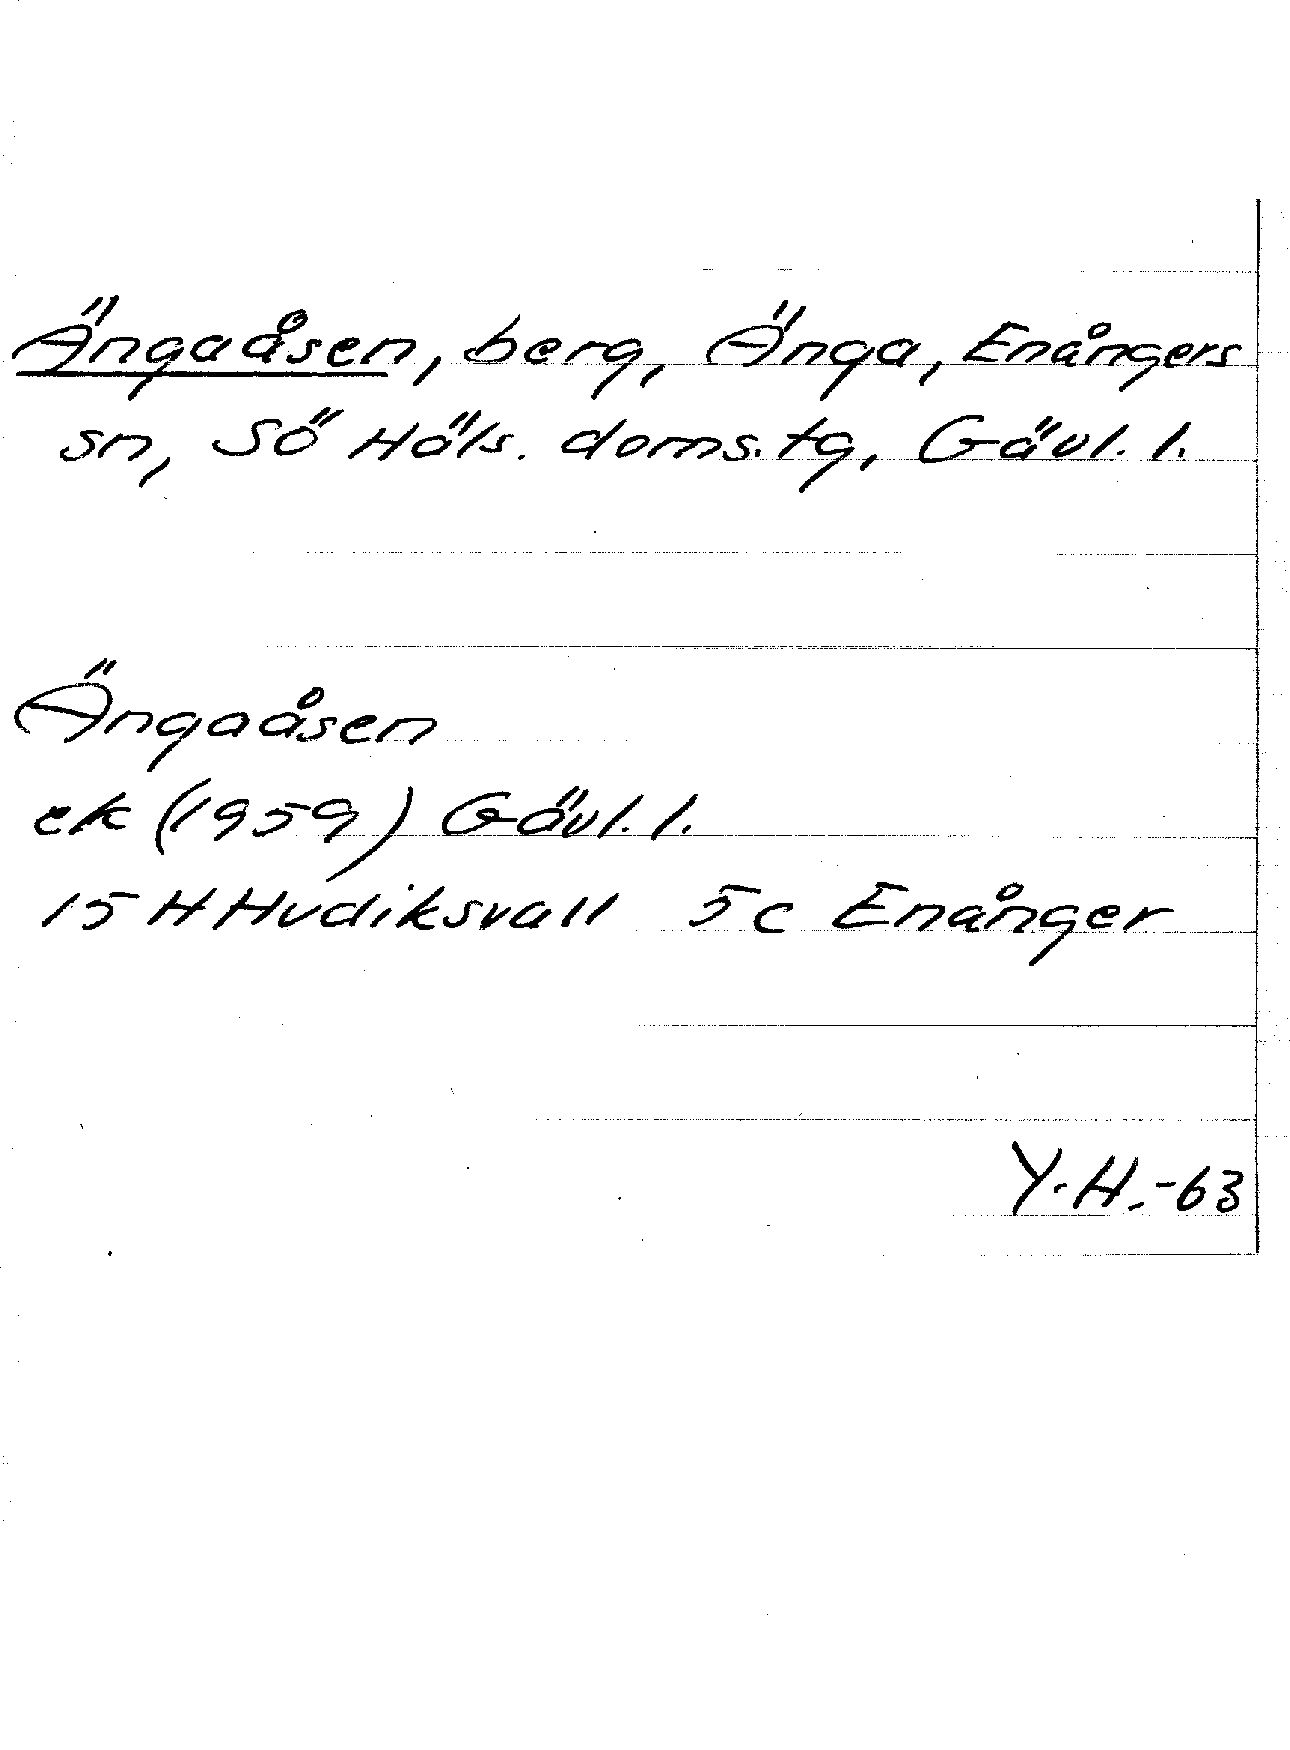 Ängaåsen, berg, Änga, Enångers
sn, Sö Häls. doms.tg, Gävl. l.
Ängaåsen
ek (1959) Gävl. l.
15 H Hudiksvall 5c Enånger
Y.H.-63